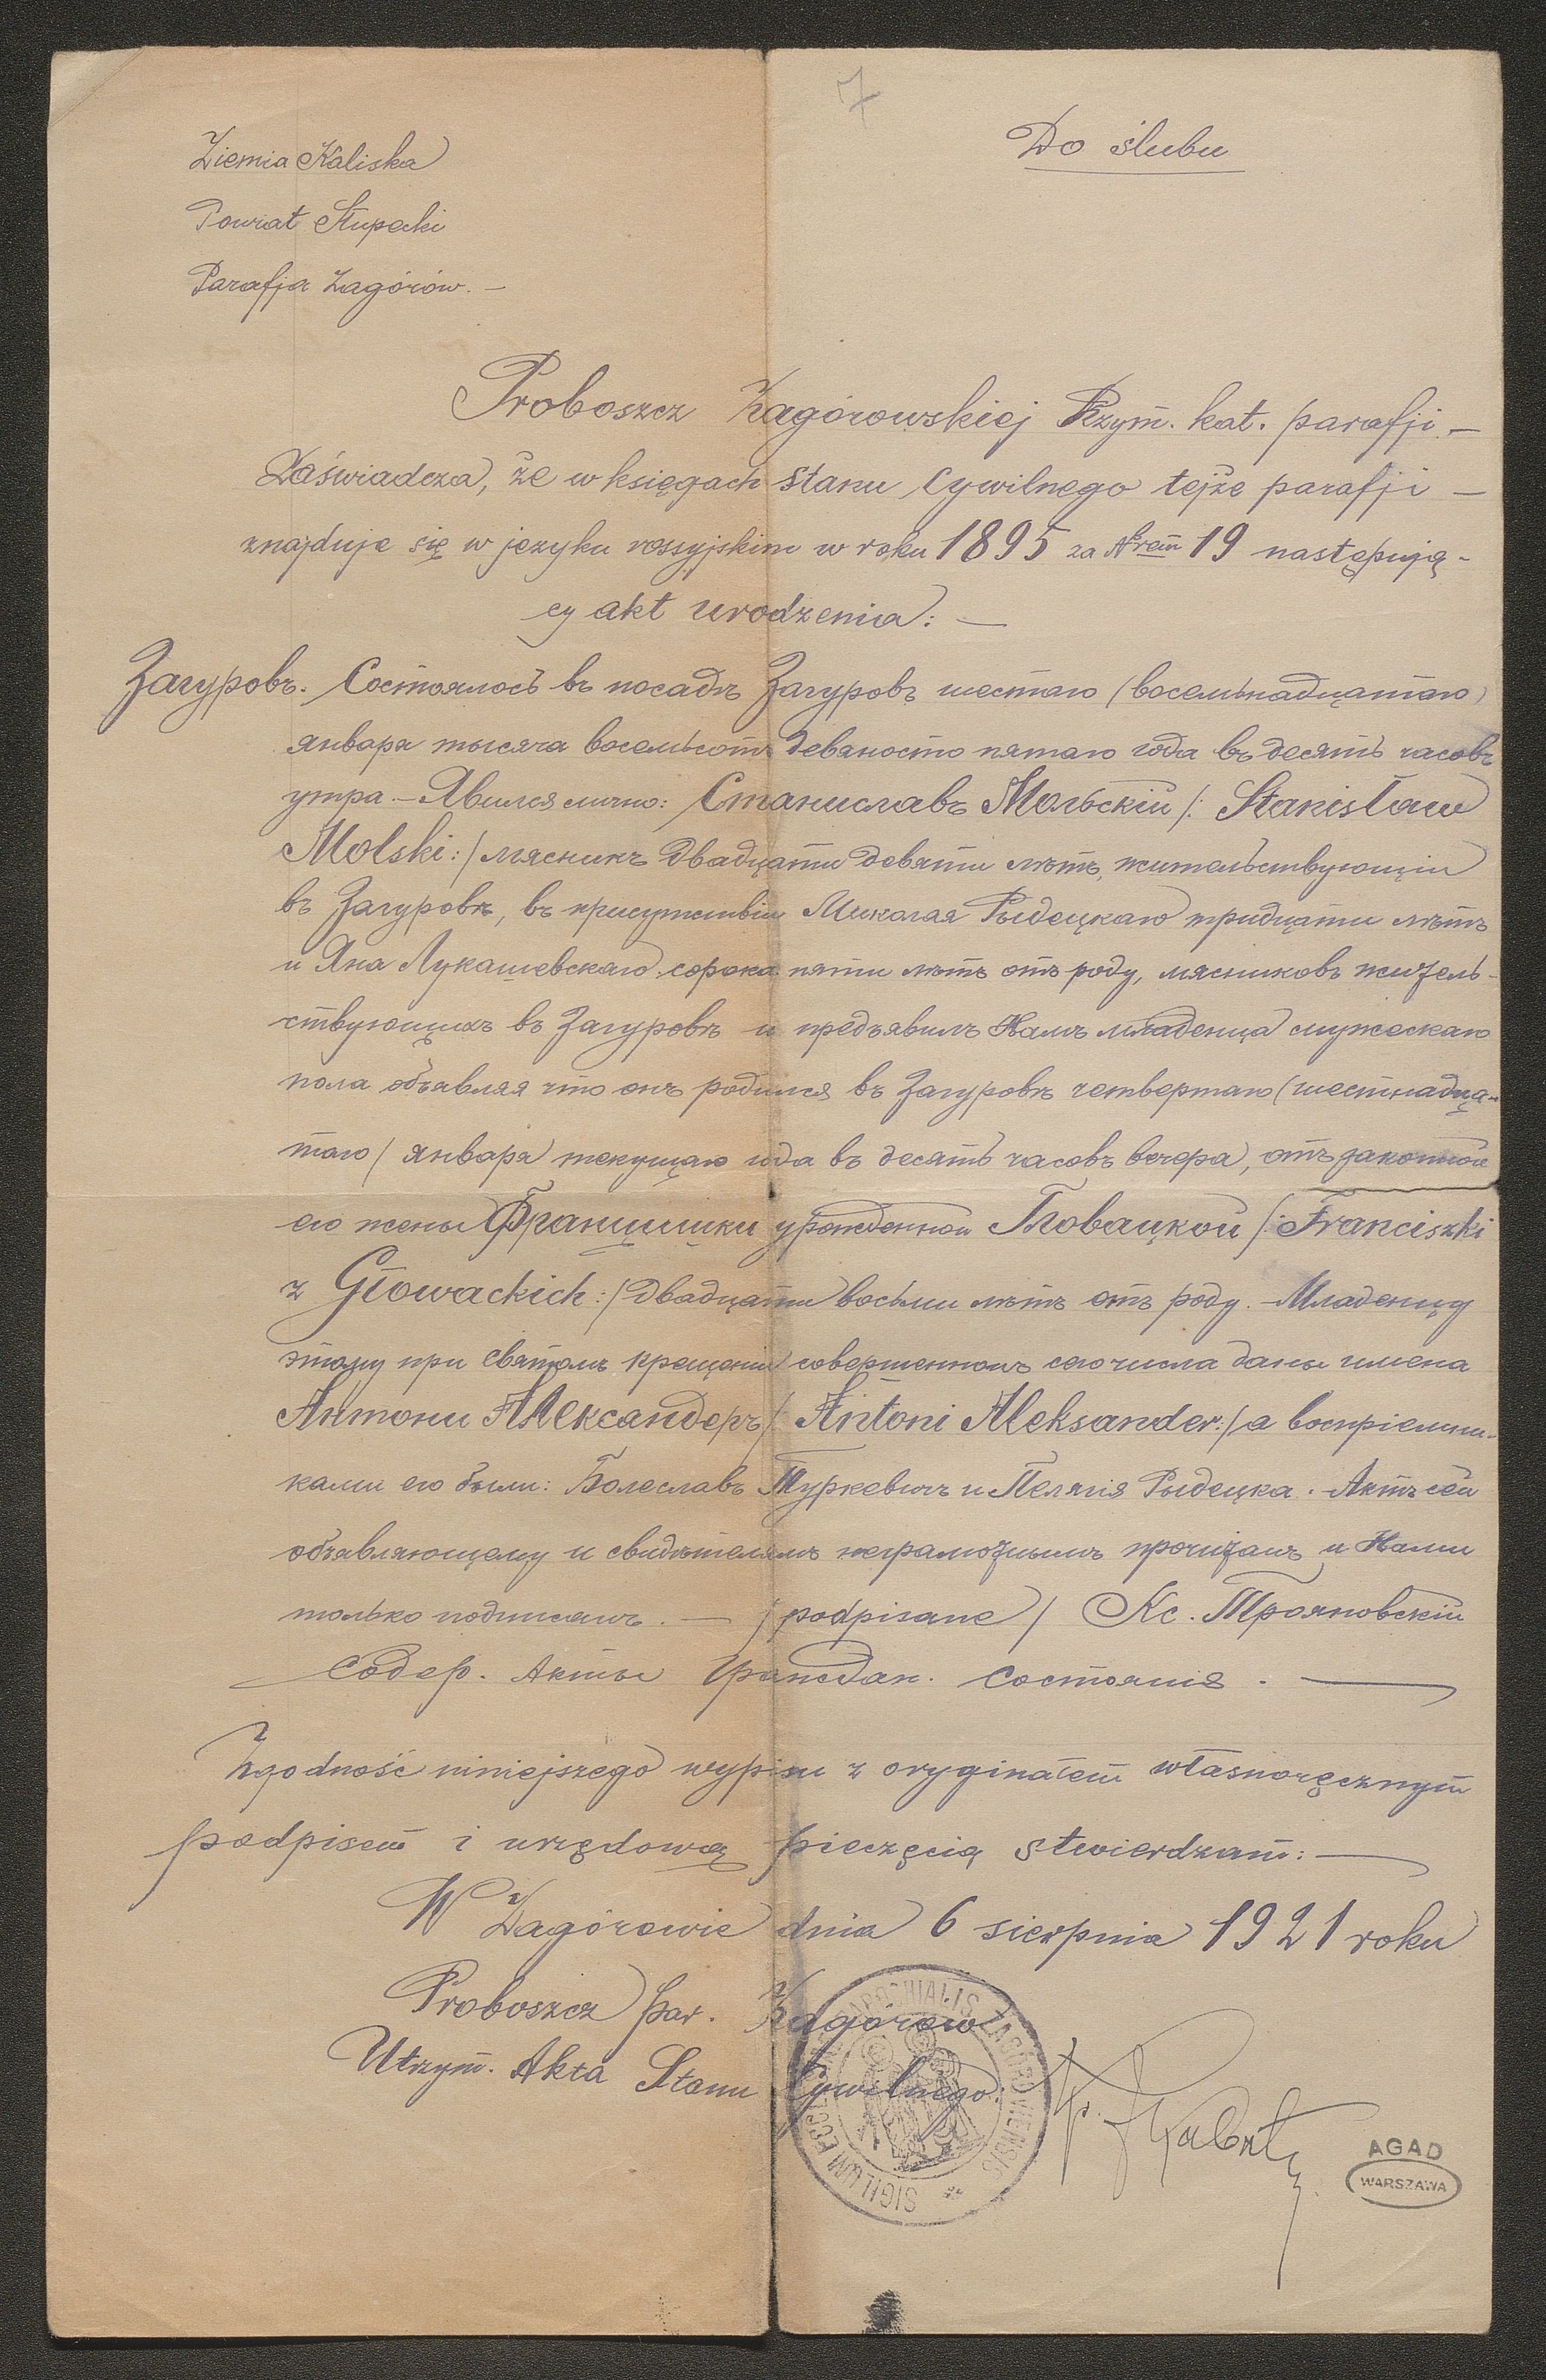 7
Do ślubu
Ziemia Kaliska
Powiat Słupecki
Parafja Zagórów. —
Proboszcz Zagórowskiej Rzym. kat. parafji —
Zaświadcza, że w księgach stanu Cywilnego tejże parafji —
znajduje się w języku rossyjskim w roku 1895 za Nrem 19 następują-
cy akt urodzenia: —
Загуровъ. Состоялось въ посадѣ Загуровъ шестаго (восемьнадцатаго)
января тысяча восемьсотъ девяносто пятаго года въ десять часовъ
утра. — Явился лично: Станиславъ Мольскій /: Stanisław
Molski :/ мясникъ двадцати девяти лѣтъ, жительствующій
въ Загуровѣ, въ присутствіи Миколая Рыдецкаго тридцати лѣтъ
и Яна Лукашевскаго сорока пяти лѣтъ отъ роду, мясниковъ житель-
ствующихъ въ Загуровѣ и предъявилъ Намъ младенца мужескаго
пола объявляя что онъ родился въ Загуровѣ четвертаго (шестнадца-
таго) января текущаго года въ десять часовъ вечера, отъ законной
его жены Францишки урожденной Гловацкой /: Franciszki
z Głowackich :/ двадцати восьми лѣтъ отъ роду. — Младенцу
этому при святомъ крещеніи совершенномъ сего числа даны имена
Антони Александеръ /: Antoni Aleksander :/ а воспріемни-
ками его были: Болеславъ Туркевичъ и Пелягія Рыдецка. Актъ сей
объявляющему и свидѣтелямъ неграмотнымъ прочитанъ и Нами
только подписанъ. — /podpisane/ Кс. Трояновскій
Содер. Акты Граждан. Состоянія. —
Zgodność niniejszego wypisu z oryginałem własnoręcznym
podpisem i urzędową pieczęcią stwierdzam: —
W Zagórowie dnia 6 sierpnia 1921 roku
Proboszcz par. Zagórów
Utrzym. Akta Stanu Cywilnego:
SIGILLUM PAROCHIALIS ZAGOROVIENSIS
AGAD
WARSZAWA